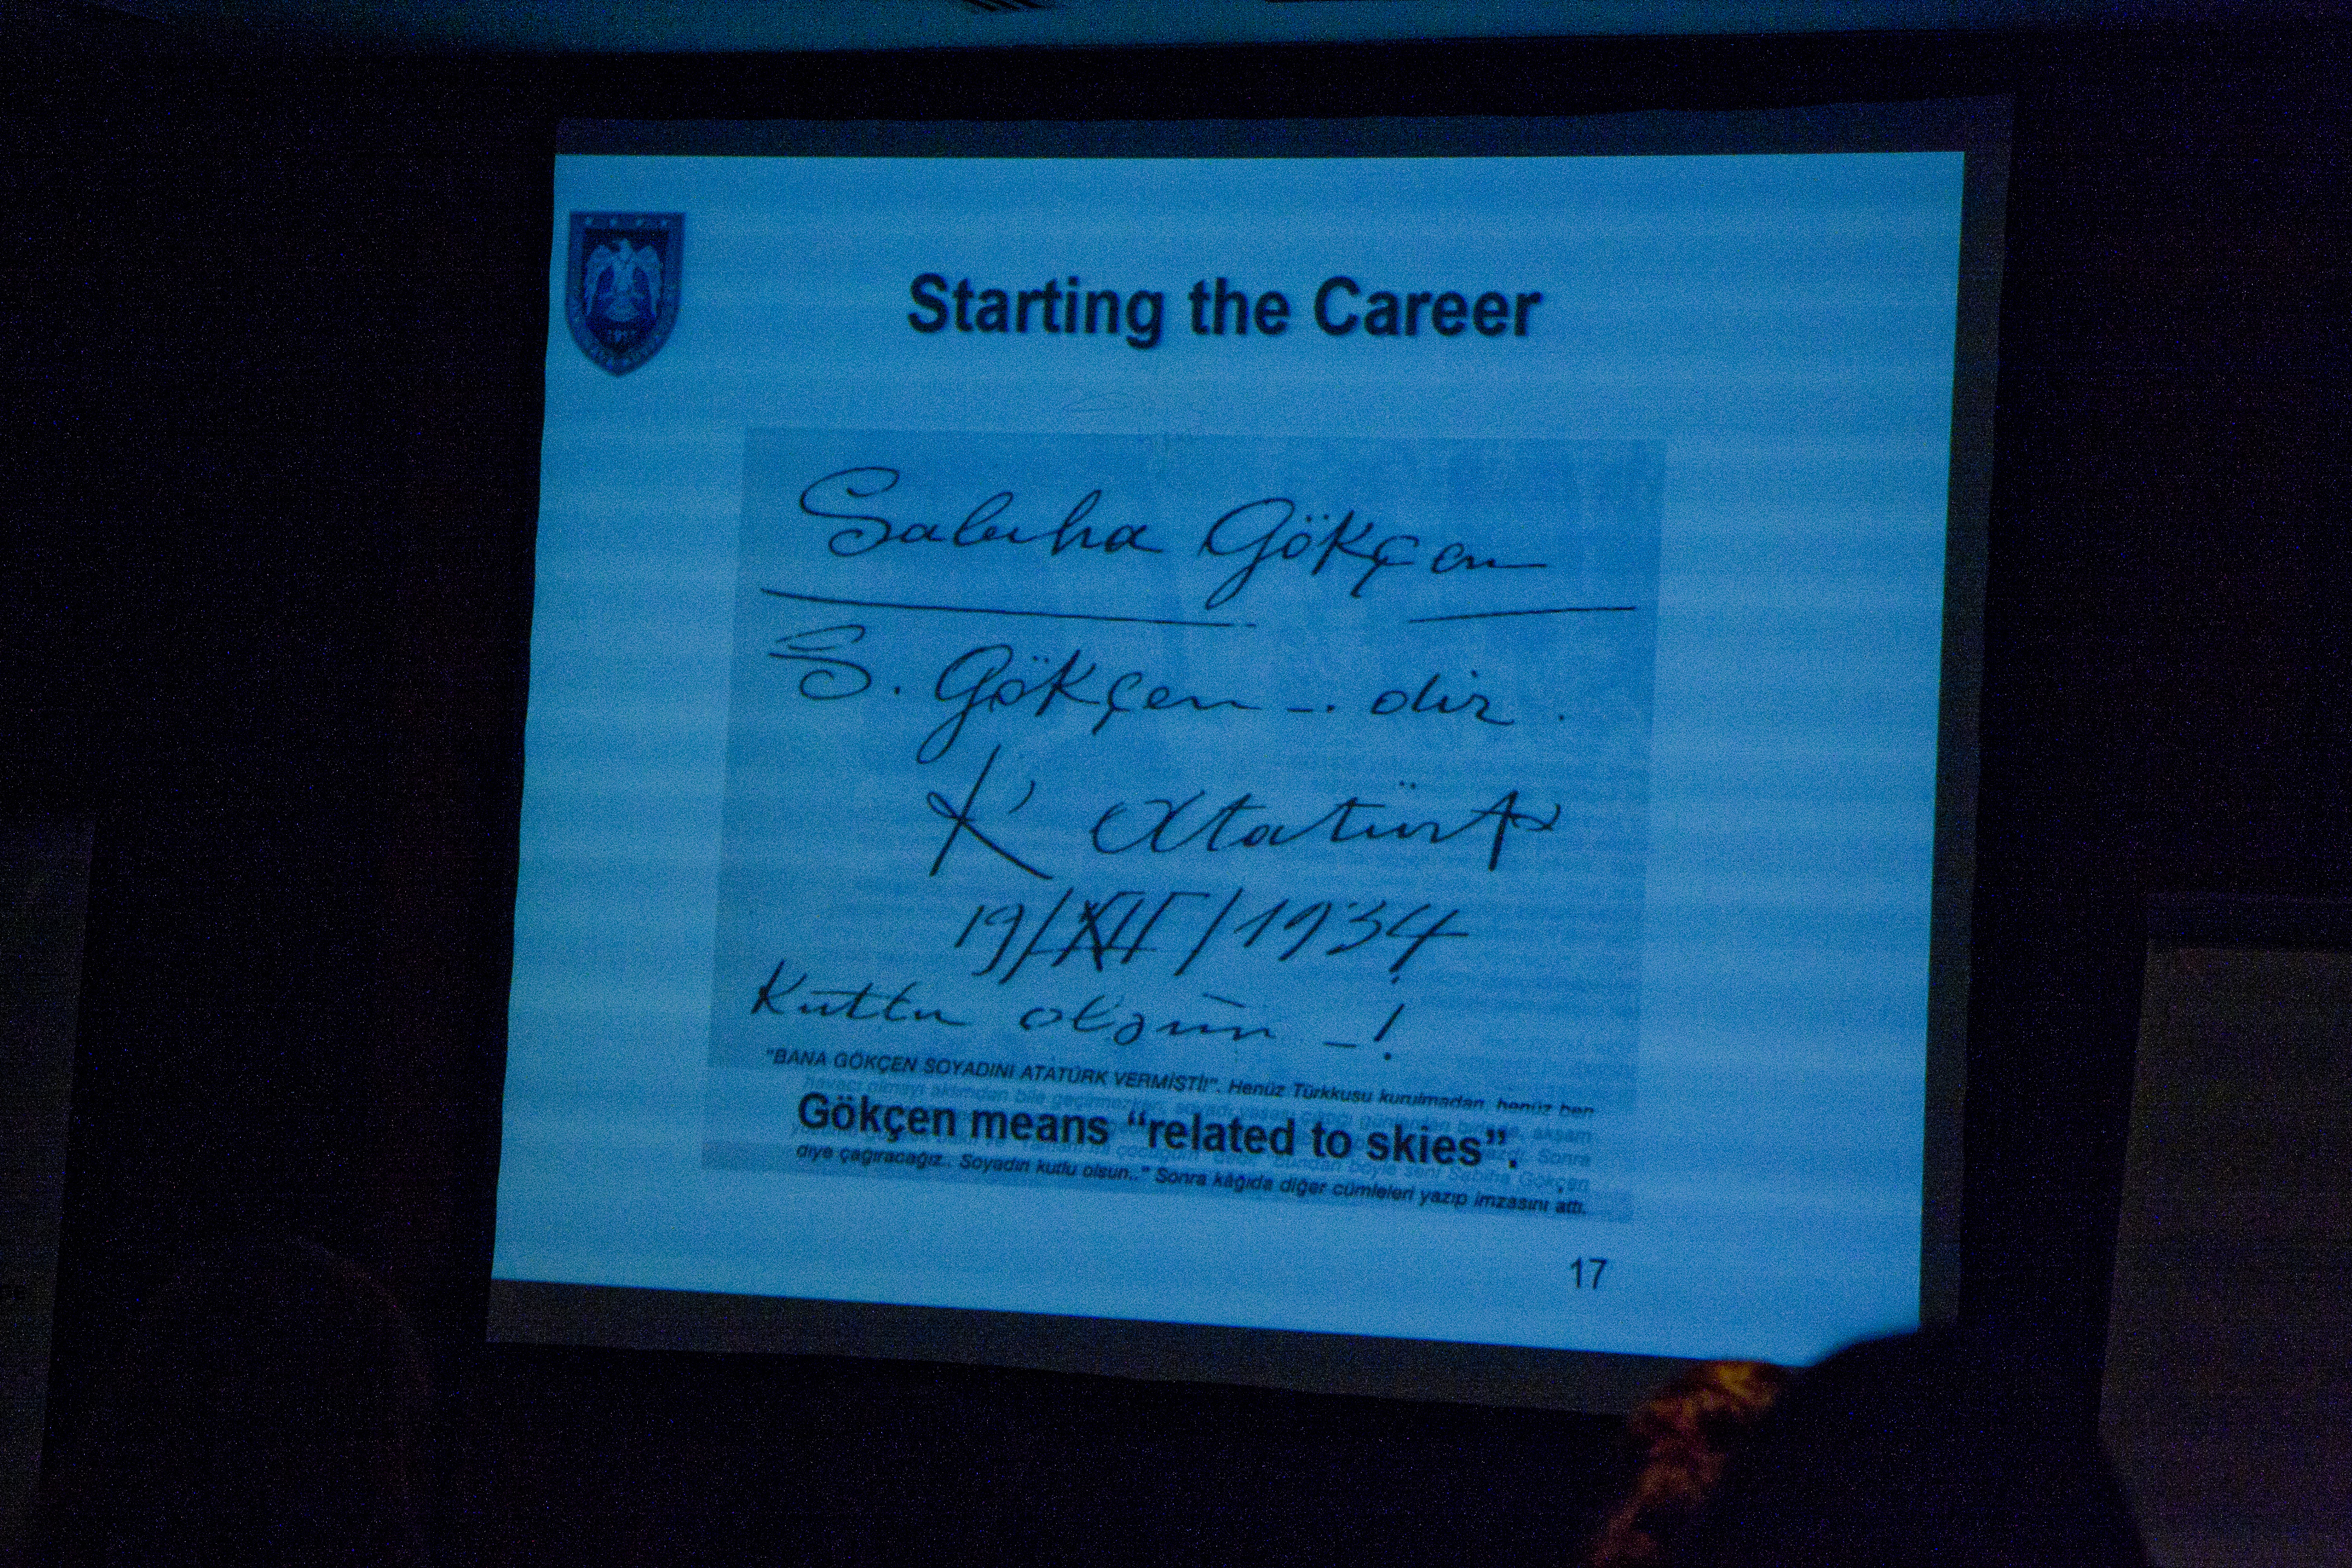 Starting the Career
Sabiha Gökçen
S. Gökçen -. dir.
K. Atatürk
19/XII/1934
Kutlu olsun - !
"BANA GÖKÇEN SOYADINI ATATÜRK VERMİŞTİ!". Henüz Türkkuşu kurulmadan, henüz ben
havacı olmayı aklımdan bile geçirmezken
Gökçen means "related to skies".
diye çağıracağız.. Soyadın kutlu olsun.." Sonra kâğıda diğer cümleleri yazıp imzasını attı.
17